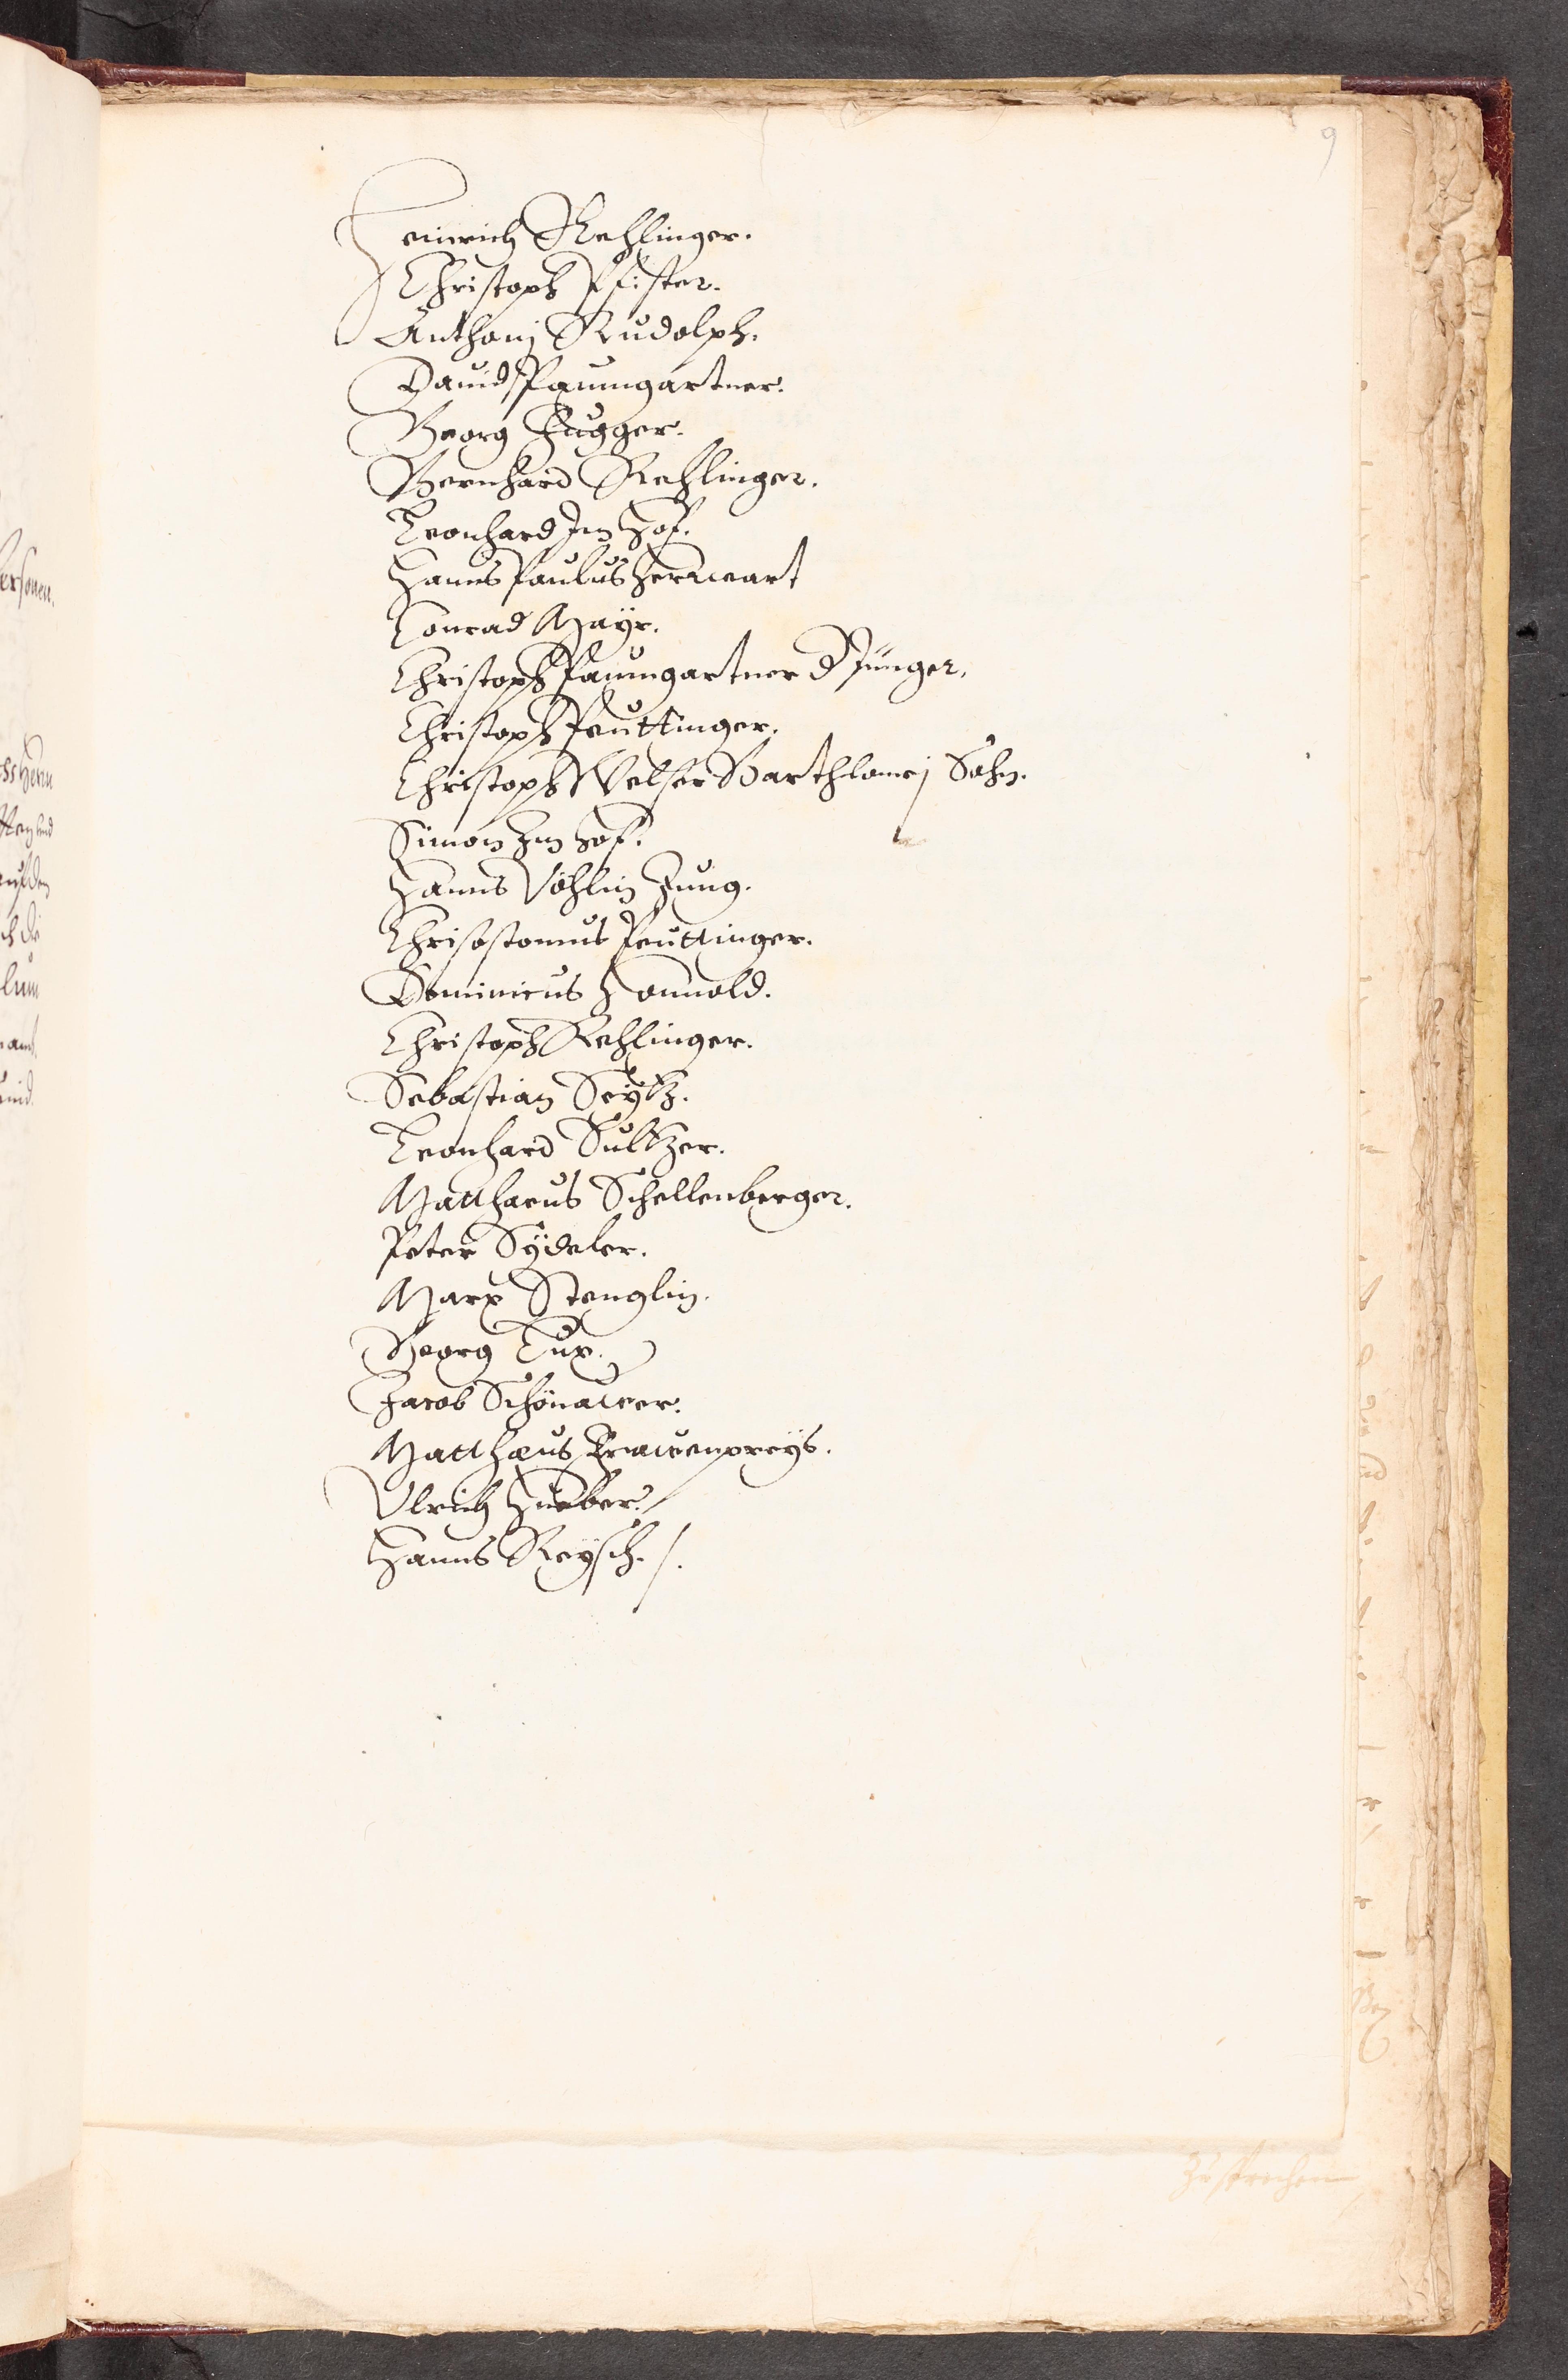 9
Heinrich Rehlinger.
Christoph Pfister.
Anthonj Rudolph.
Dauid Paumgartner.
Georg Fugger.
Bernhard Rehlinger.
Leonhard Im Hof.
Hanns Paulus Herwart
Conrad Mayr.
Christoph Paumgartner D Jünger.
Christoph Peuttinger.
Christoph Welser Barthlomej Sohn.
Simon Im Hof.
Hanns Vöhlin Jung.
Chrisostomus Peuttinger.
Dominicus Honnold.
Christoph Rehlinger.
Sebastian Seÿtz.
Leonhard Sultzer.
Matthaeus Schellenberger.
Peter Sÿdeler.
Marx Stenglin.
Georg Lux.
Jacob Schönawer.
Matthæus Frawenpreÿs.
Vlrich Hueber.
Hanns Reÿsch. /.